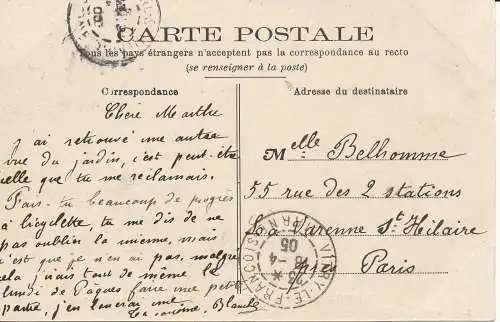 CARTE POSTALE
Tous les pays étrangers n'acceptent pas la correspondance au recto
(se renseigner à la poste)
Correspondance
Chère Marthe
J'ai retrouvé une autre
vue du jardin, c'est peut-être
celle que tu me réclamais.
Fais-tu beaucoup de progrès
à bicyclette, tu me dis de ne
pas oublier la mienne, mais
c'est que je n'en ai pas, malgré
cela j'irais tout de même le
lundi de Pâques faire une petite
partie, j'en louerai une.
Ta cousine, Blanche
Adresse du destinataire
Melle Belhomme
55 rue des 2 stations
La Varenne St Hilaire
près Paris
VITRY-LE-FRANÇOIS
MARNE
4
05